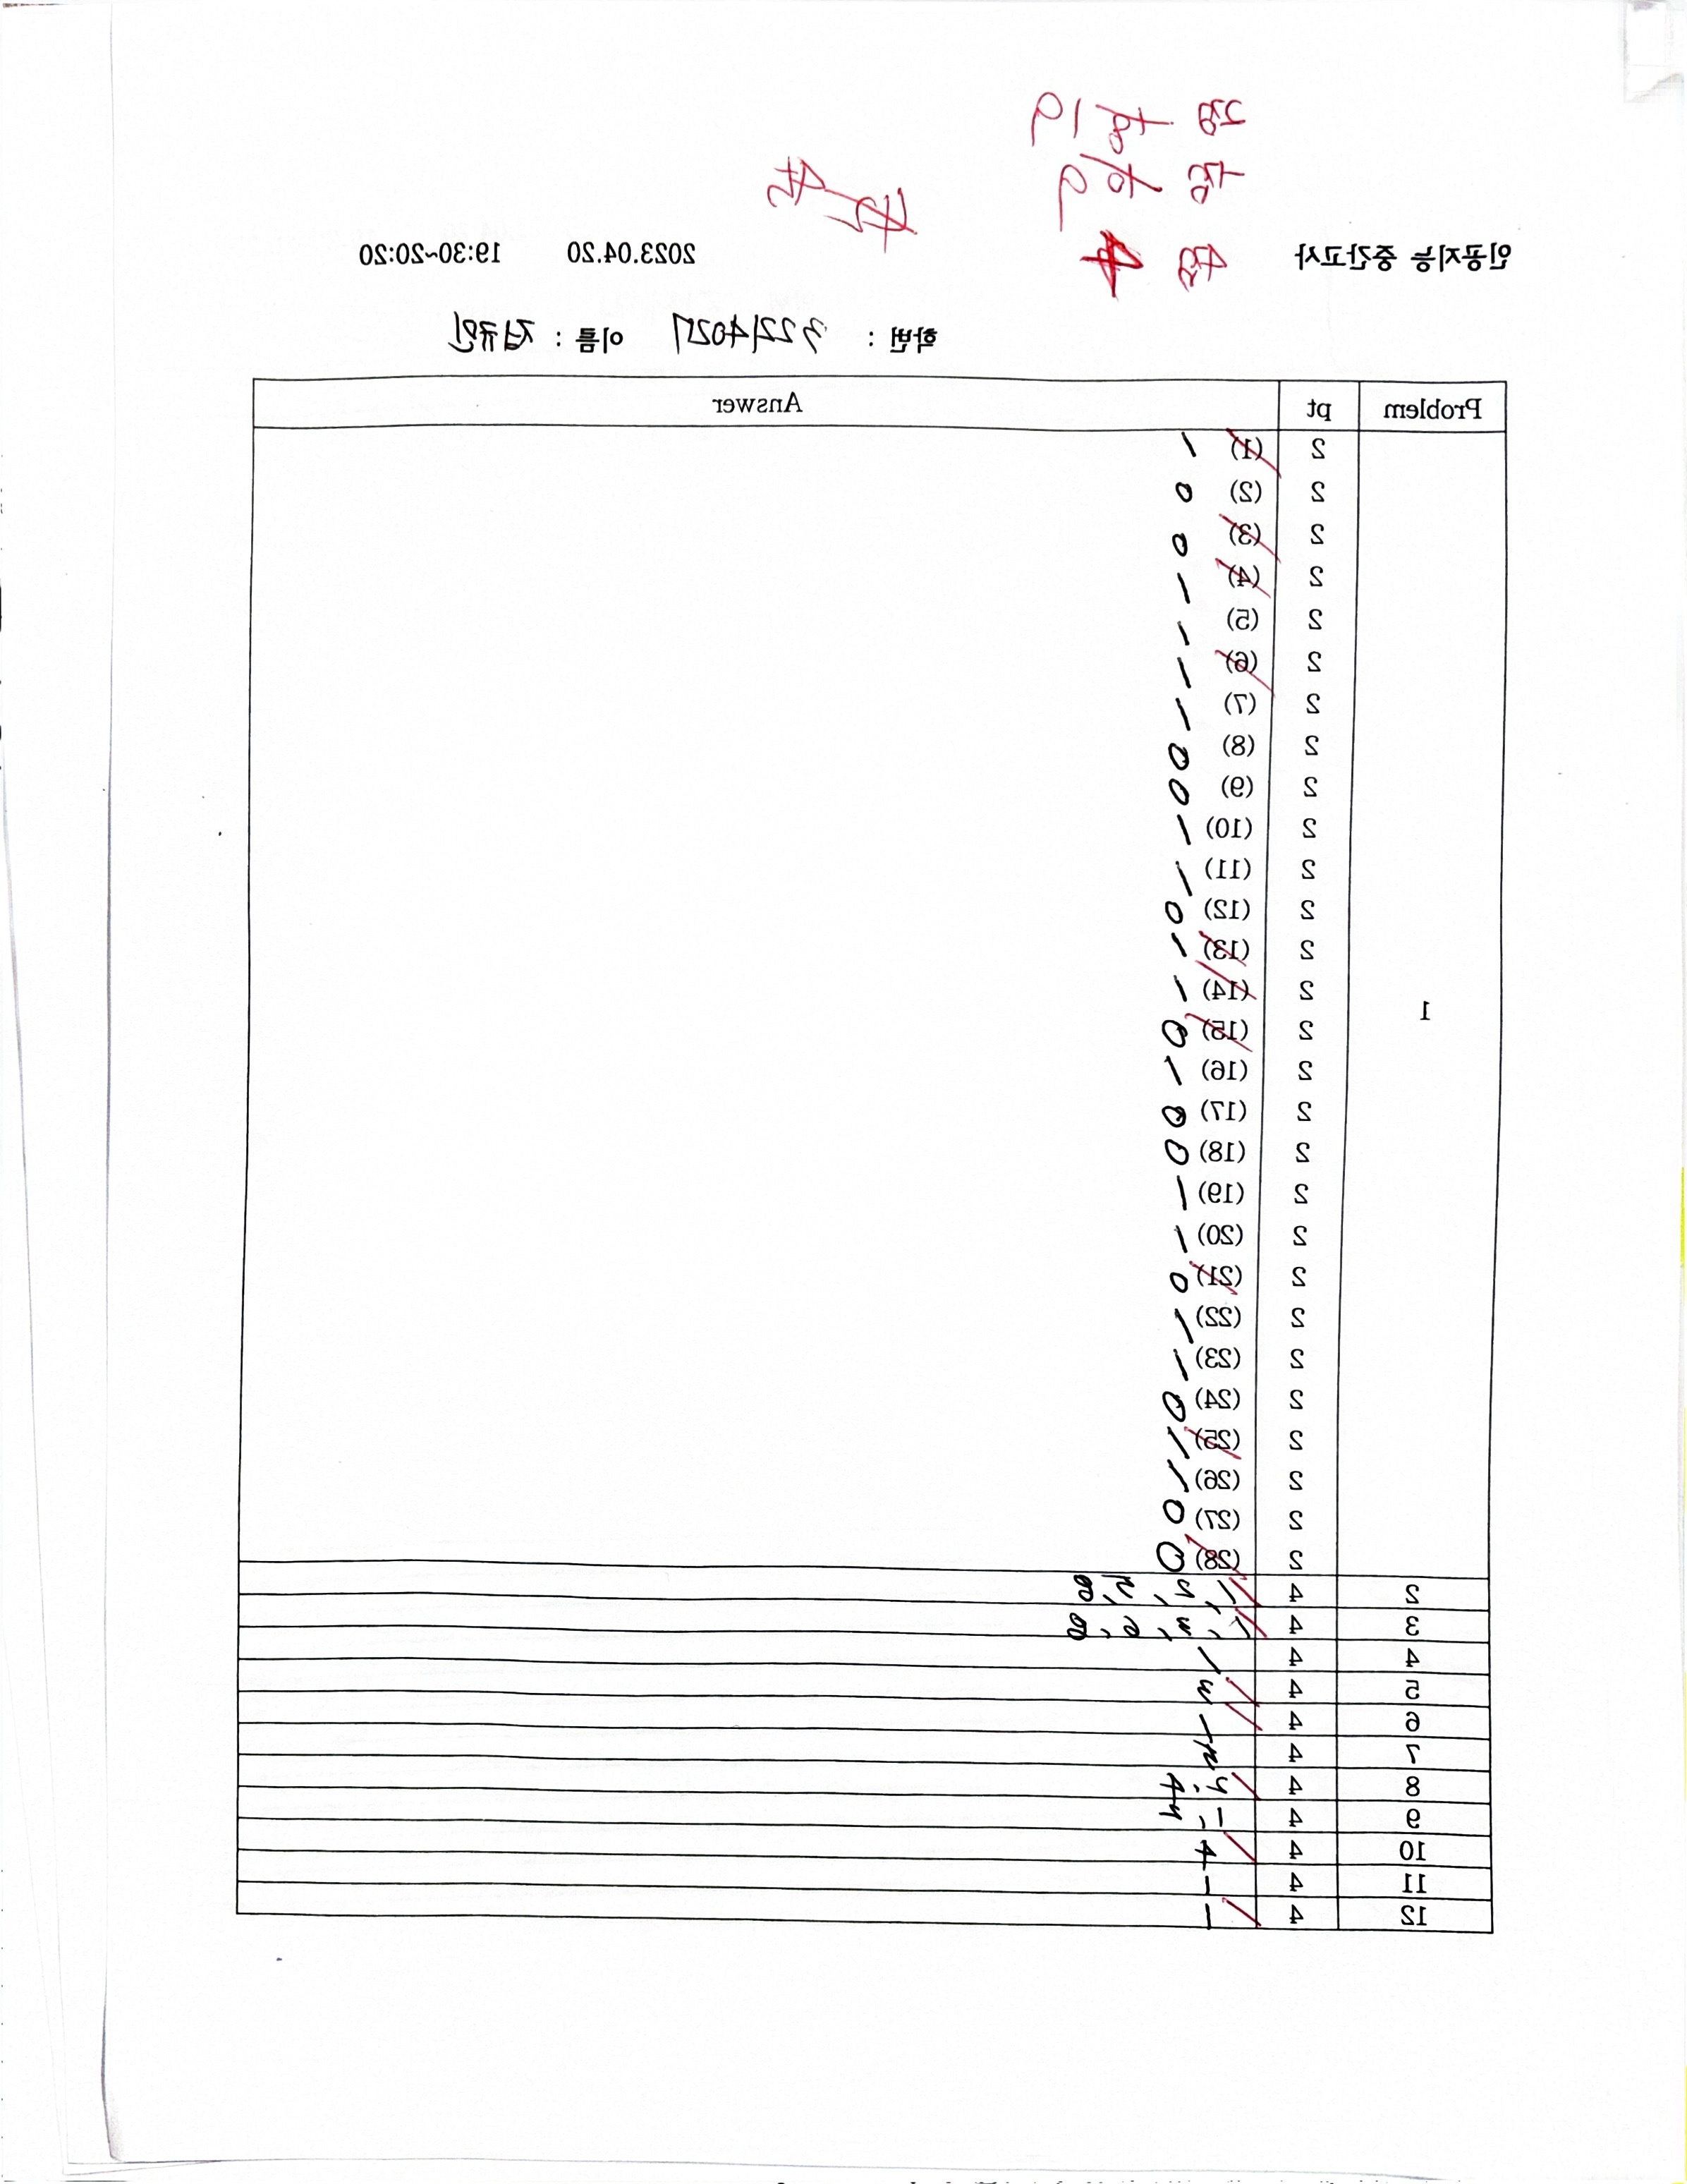 인공지능 중간고사 2023.04.20 19:30~20:20
학번 : 32214027 이름 : 정규민
Problem pt Answer
1
2 (1) 1
2 (2) 0
2 (3) 0
2 (4) 1
2 (5) 1
2 (6) 1
2 (7) 1
2 (8) 0
2 (9) 0
2 (10) 1
2 (11) 1
2 (12) 0
2 (13) 1
2 (14) 1
2 (15) 0
2 (16) 1
2 (17) 0
2 (18) 0
2 (19) 1
2 (20) 1
2 (21) 0
2 (22) 1
2 (23) 1
2 (24) 0
2 (25) 1
2 (26) 1
2 (27) 0
2 (28) 0
2 4 1, 2, 5, 8
3 4 1, 3, 6, 8
4 4 1
5 4 3
6 4 1
7 4
8 4
9 4
10 4 4
11 4 1
12 4 1